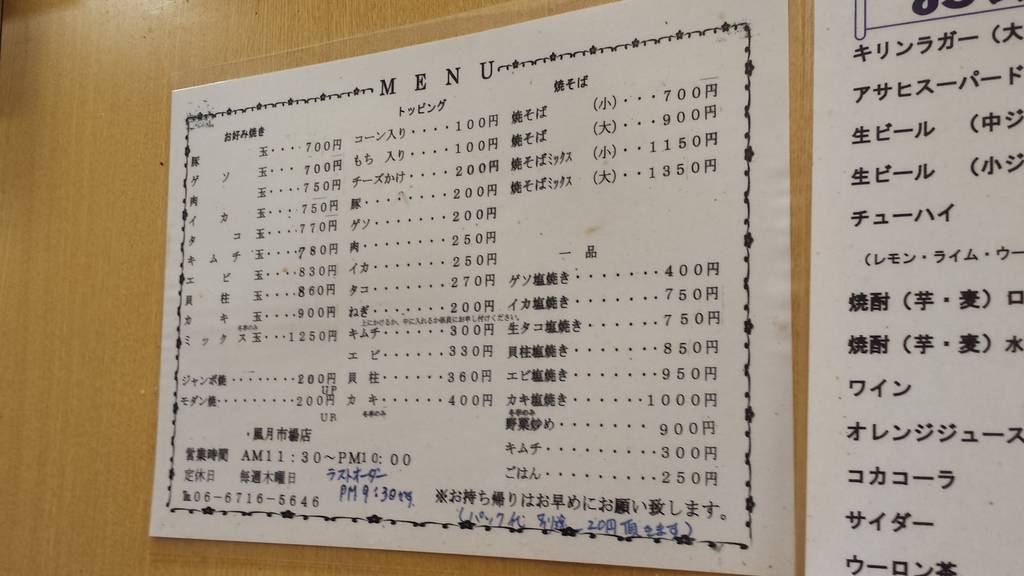 MENU
お好み焼き
豚玉・・・・700円
ゲソ玉・・・・700円
肉玉・・・・750円
イカ玉・・・750円
タコ玉・・・・770円
キムチ玉・・・・780円
エビ玉・・・・830円
貝柱玉・・・・860円
カキ玉・・・・900円
冬季のみ
ミックス玉・・・1250円
ジャンボ焼・・・・・・・・200円
UP
モダン焼・・・・・・・・・200円
UP
トッピング
コーン入り・・・・100円
もち入り・・・・100円
チーズかけ・・・・200円
豚・・・・・・・・200円
ゲソ・・・・・・・200円
肉・・・・・・・・250円
イカ・・・・・・・250円
タコ・・・・・・・270円
ねぎ・・・・・・・200円
上にかけるか、中に入れるか係員にお申し付けください。
キムチ・・・・・・300円
エビ・・・・・・330円
貝柱・・・・・・360円
カキ・・・・・・400円
冬季のみ
焼そば
焼そば（小）・・・700円
焼そば（大）・・・900円
焼そばミックス（小）・・・1150円
焼そばミックス（大）・・・1350円
一品
ゲソ塩焼き・・・・・・・400円
イカ塩焼き・・・・・・・750円
生タコ塩焼き・・・・・・750円
貝柱塩焼き・・・・・・・850円
エビ塩焼き・・・・・・・950円
カキ塩焼き・・・・・・1000円
冬季のみ
野菜炒め・・・・・・・・900円
キムチ・・・・・・・・・300円
ごはん・・・・・・・・・250円
・風月市場店
営業時間 AM11：30～PM10：00
定休日 毎週木曜日
℡06-6716-5646
ラストオーダー
PM9:30です。
※お持ち帰りはお早めにお願い致します。
(パック代 別途 20円頂きます)
キリンラガー（大
アサヒスーパード
生ビール （中ジ
生ビール （小ジ
チューハイ
（レモン・ライム・ウー
焼酎（芋・麦）ロ
焼酎（芋・麦）水
ワイン
オレンジジュース
コカコーラ
サイダー
ウーロン茶